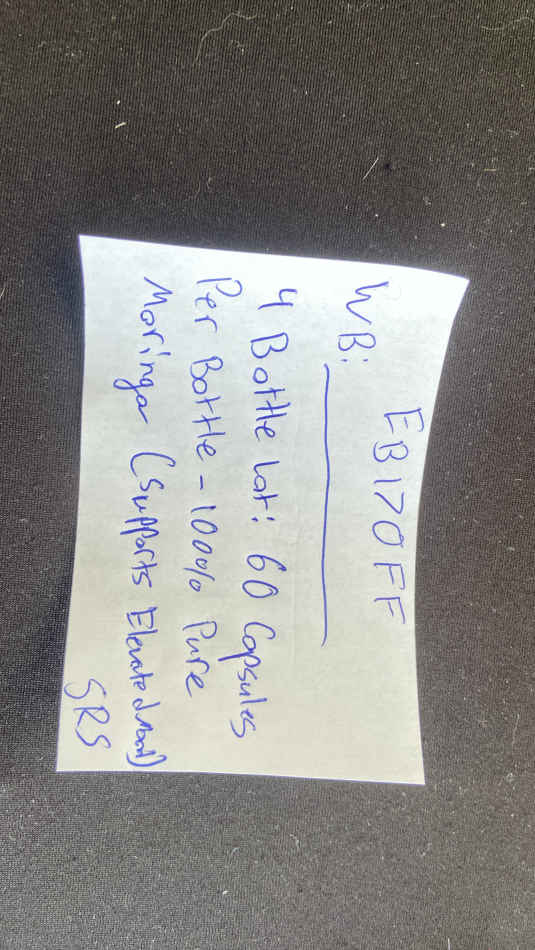 EB170FF
WB:
4 Bottle Lot: 60 Capsules
Per Bottle - 100% Pure
Moringa (Supports Elevated Mood)
SRS